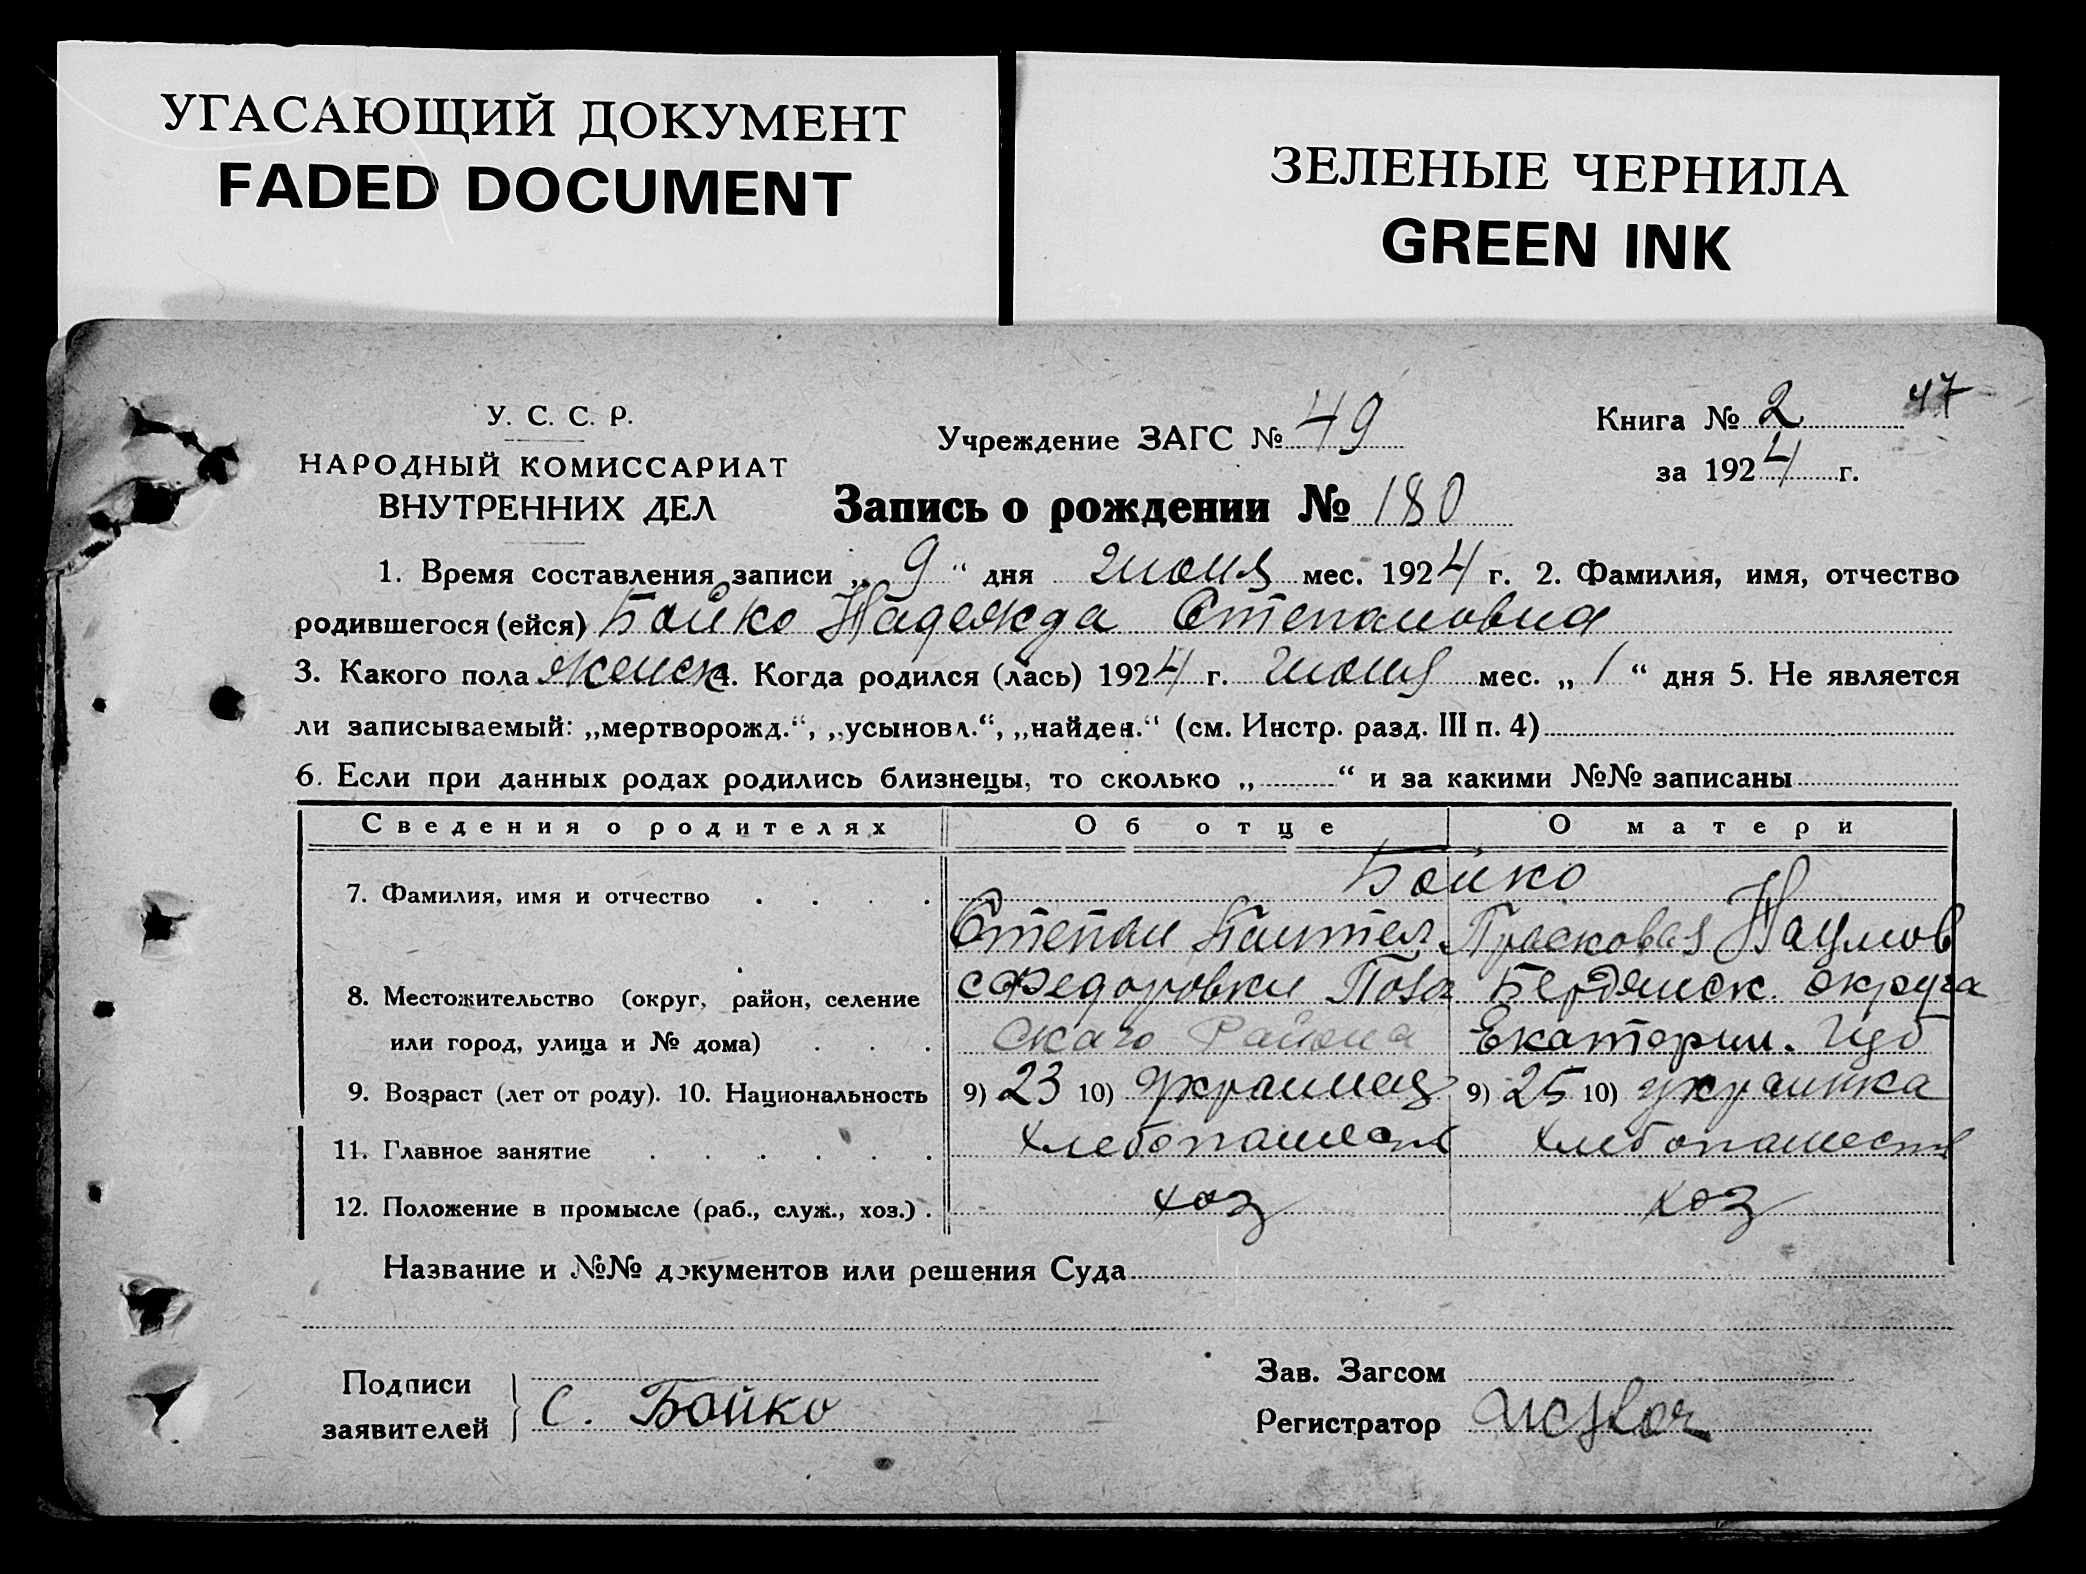 УГАСАЮЩИЙ ДОКУМЕНТ
FADED DOCUMENT
ЗЕЛЕНЫЕ ЧЕРНИЛА
GREEN INK
У. С. С. Р.
НАРОДНЫЙ КОМИССАРИАТ
ВНУТРЕННИХ ДЕЛ
Учреждение ЗАГС № 49
Книга № 2 47
за 1924 г.
Запись о рождении № 180
1. Время составления записи „ 9 “ дня июня мес. 1924 г. 2. Фамилия, имя, отчество
родившегося (ейся) Бойко Надежда Степановна
3. Какого пола женск 4. Когда родился (лась) 1924 г. июня мес. „ 1 “ дня 5. Не является
ли записываемый: „мертворожд.“, „усыновл.“, „найден.“ (см. Инстр. разд. III п. 4)
6. Если при данных родах родились близнецы, то сколько „ “ и за какими №№ записаны
Сведения о родителях Об отце О матери
Бойко
7. Фамилия, имя и отчество
Степан Пантел. Прасковья Наумов
8. Местожительство (округ, район, селение с Федоровки Бердянск. округа
или город, улица и № дома) скаго Района Екатерин. Губ
9. Возраст (лет от роду). 10. Национальность 9) 23 10) украинец 9) 25 10) украинка
11. Главное занятие хлебопашеств хлебопашеств
12. Положение в промысле (раб., служ., хоз.) . хоз хоз
Название и №№ документов или решения Суда
Подписи
заявителей
С. Бойко
Зав. Загсом
Регистратор